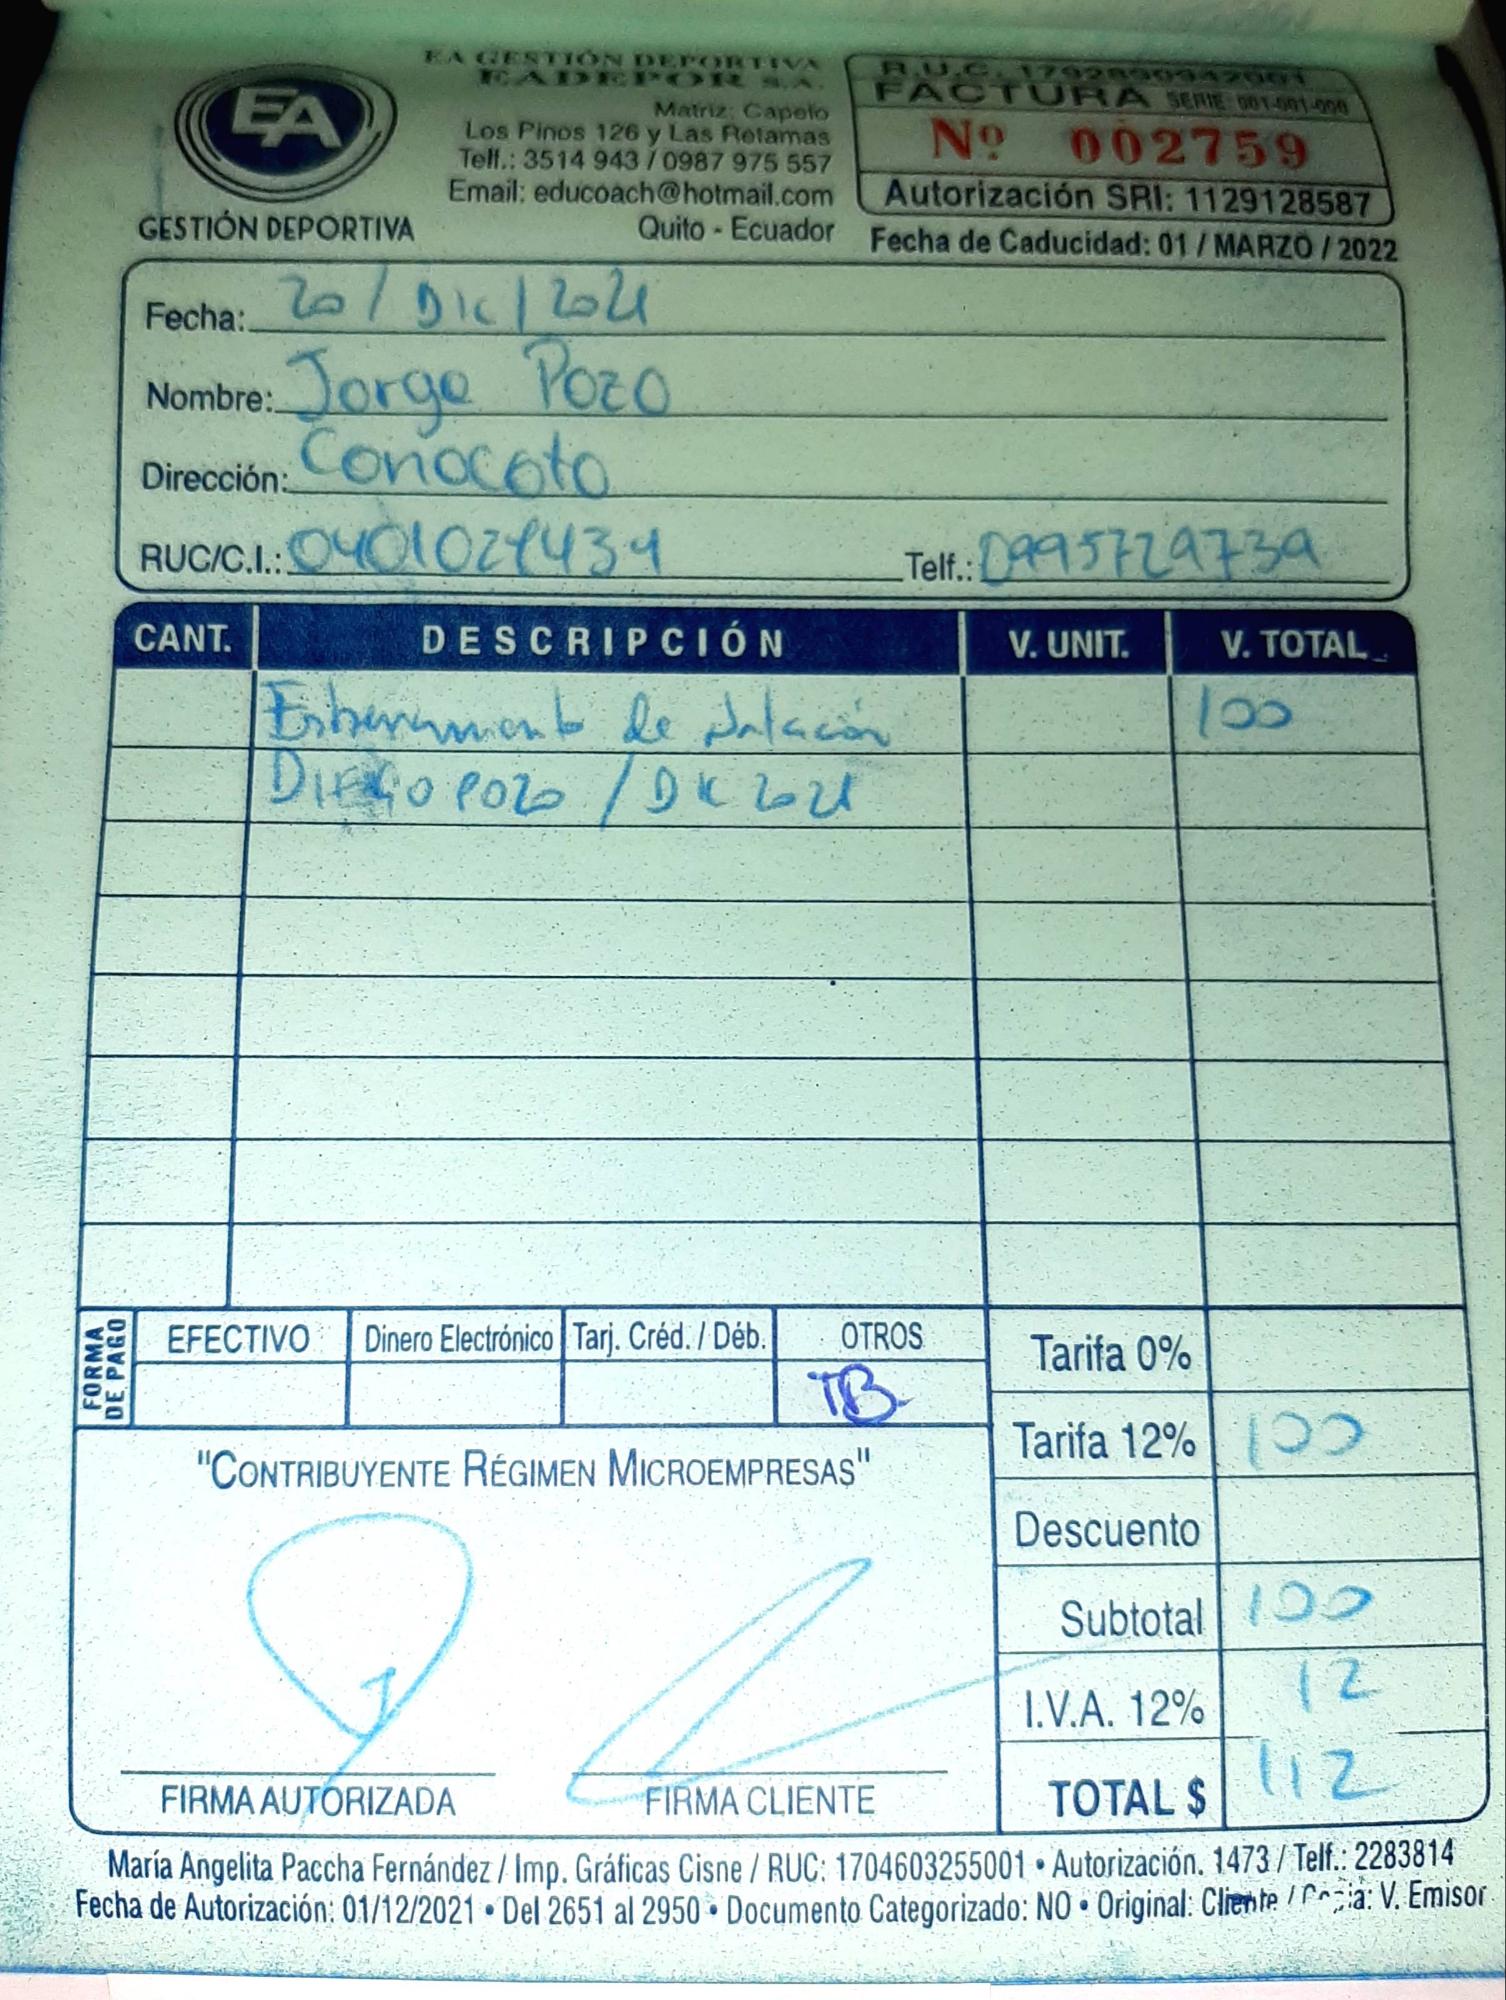 EA
GESTIÓN DEPORTIVA
EA GESTIÓN DEPORTIVA
EADEPOR S.A.
Matriz: Capelo
Los Pinos 126 y Las Retamas
Telf.: 3514 943 / 0987 975 557
Email: educoach@hotmail.com
Quito - Ecuador
R.U.C. 1792890942001
FACTURA SERIE 001-001-000
Nº 002759
Autorización SRI: 1129128587
Fecha de Caducidad: 01 / MARZO / 2022
Fecha: 20 / Dic / 2021
Nombre: Jorge Pozo
Dirección: Conocoto
RUC/C.I.: Telf.: 0995729739
CANT. DESCRIPCIÓN V. UNIT. V. TOTAL
Entrenamiento de Natación 100
DIEGO POZO / Dic 2021
FORMA DE PAGO
EFECTIVO Dinero Electrónico Tarj. Créd. / Déb. OTROS
TB.
"CONTRIBUYENTE RÉGIMEN MICROEMPRESAS"
Tarifa 0%
Tarifa 12% 100
Descuento
Subtotal 100
I.V.A. 12% 12
TOTAL $ 112
FIRMA AUTORIZADA FIRMA CLIENTE
María Angelita Paccha Fernández / Imp. Gráficas Cisne / RUC: 1704603255001 • Autorización. 1473 / Telf.: 2283814
Fecha de Autorización: 01/12/2021 • Del 2651 al 2950 • Documento Categorizado: NO • Original: Cliente / Copia: V. Emisor